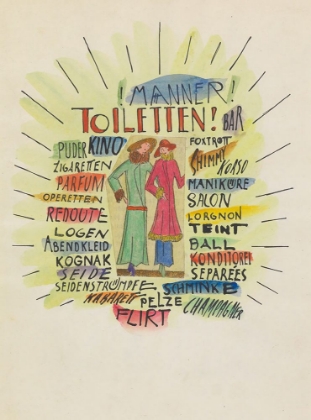 ! MÄNNER !
TOILETTEN! BAR
PUDER KINO
ZIGARETTEN
PARFUM
OPERETTEN
REDOUTE
LOGEN
ABENDKLEID
KOGNAK
SEIDE
SEIDENSTRÜMPFE
KABARETT
FOXTROTT
SHIMMY KORSO
MANIKÜRE
SALON
LORGNON
TEINT
BALL
KONDITOREI
SEPAREES
SCHMINKE
PELZE CHAMPAGNER
FLIRT